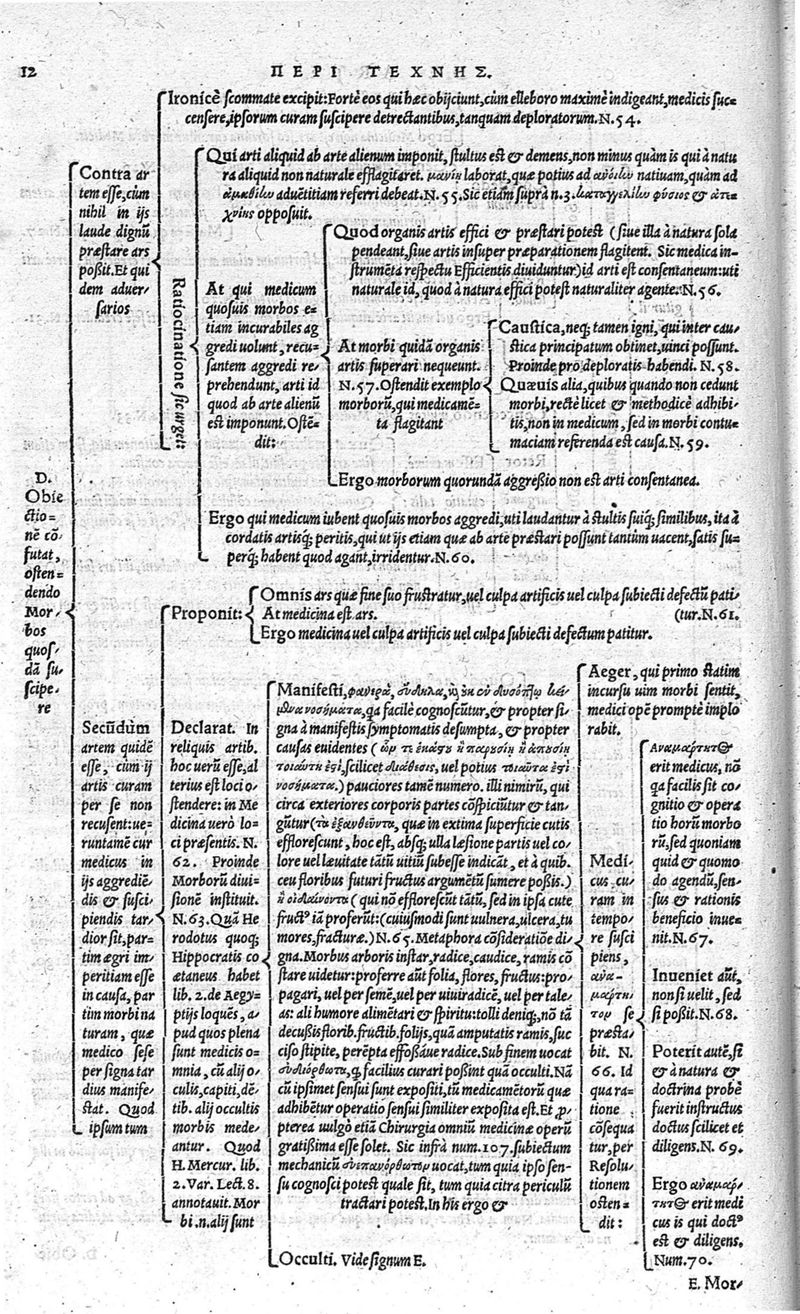 12
ΠΕΡΙ ΤΕΧΝΗΣ.
Ironicè scommate excipit: Fortè eos qui hæc obijciunt, cùm elleboro maximè indigeant, medicis suc-
censere, ipsorum curam suscipere detrectantibus, tanquam deploratorum. N. 54.
Contra ar
tem esse, cùm
nihil in ijs
laude dignũ
præstare ars
poßit. Et qui
dem aduer-
sarios
Ratiocinatione sic urget:
Qui arti aliquid ab arte alienum imponit, stultus est & demens, non minus quàm is qui à natu
ra aliquid non naturale efflagitaret. μανίῃ laborat, quæ potius ad natiuam, quàm ad
aduētitiam referri debeat. N. 55. Sic etiam suprà n. 3. φύσιος & ἀτε-
χνίης opposuit.
At qui medicum
quosuis morbos e-
tiam incurabiles ag
gredi uolunt, recu-
santem aggredi re-
prehendunt, arti id
quod ab arte alienũ
est imponunt. Ostē-
dit:
Quod organis artis effici & præstari potest (siue illa à natura sola
pendeant, siue artis insuper præparationem flagitent. Sic medica in-
strumēta respectu Efficientis diuiduntur) id arti est consentaneum: uti
naturale id, quod à natura effici potest naturaliter agente. N. 56.
At morbi quidā organis
artis superari nequeunt.
N. 57. Ostendit exemplo
morborũ, qui medicamē-
ta flagitant
Caustica, neq; tamen igni, qui inter cau-
stica principatum obtinet, uinci possunt.
Proinde pro deploratis habendi. N. 58.
Quæuis alia, quibus quando non cedunt
morbi, rectè licet & methodicè adhibi-
tis, non in medicum, sed in morbi contu-
maciam referenda est causa. N. 59.
Ergo morborum quorundā aggreßio non est arti consentanea.
Ergo qui medicum iubent quosuis morbos aggredi, uti laudantur à stultis suiq; similibus, ita à
cordatis artisq; peritis, qui ut ijs etiam quæ ab arte præstari possunt tantùm uacent, satis su-
perq; habent quod agant, irridentur. N. 60.
D.
Obie
ctio-
nē cō
futat,
osten-
dendo
Mor-
bos
quos-
dā su-
scipe-
re
Secũdum
artem quidē
esse, cùm ij
artis curam
per se non
recusent: ue-
runtamē cur
medicus in
ijs aggrediē-
dis & susci-
piendis tar-
dior sit, par-
tim ægri im-
peritiam esse
in causa, par
tim morbi na
turam, quæ
medico sese
per signa tar
dius manife-
stat. Quod
ipsum tum
Proponit:
Omnis ars quæ fine suo frustratur, uel culpa artificis uel culpa subiecti defectũ pati-
At medicina est ars. (tur. N. 61.
Ergo medicina uel culpa artificis uel culpa subiecti defectum patitur.
Declarat. In
reliquis artib.
hoc uerũ esse, al
terius est loci o-
stendere: in Me
dicina uerò lo-
ci præsentis. N.
62. Proinde
Morborũ diui-
sionē instituit.
N. 63. Quā He
rodotus quoq;
Hippocratis co
ætaneus habet
lib. 2. de Aegy-
ptijs loquēs, a-
pud quos plena
sunt medicis o-
mnia, cũ alij o-
culis, capiti, dē-
tib. alij occultis
morbis mede-
antur. Quod
H. Mercur. lib.
2. Var. Lect. 8.
annotauit. Mor
bi. n. alij sunt
Manifesti, φανερὰ,
νοσήματα, qa facilè cognoscũtur, & propter si-
gna à manifestis symptomatis desumpta, & propter
causas euidentes (
scilicet διάθεσις, uel potius
νοσήματα.) pauciores tamē numero. illi nimirũ, qui
circa exteriores corporis partes cōspiciũtur & tan-
gũtur (τὰ ἐξανθεῦντα, quæ in extima superficie cutis
efflorescunt, hoc est, absq; ulla læsione partis uel co-
lore uel læuitate tātũ uitiũ subesse indicāt, et à quib.
ceu floribus futuri fructus argumētũ sumere poßis.)
(qui nō efflorescũt tātũ, sed in ipsa cute
fruct⁹ iā proferũt: (cuiusmodi sunt uulnera, ulcera, tu
mores, fracturæ.) N. 65. Metaphora cōsideratiōe di-
gna. Morbus arboris instar, radice, caudice, ramis cō
stare uidetur: proferre aũt folia, flores, fructus: pro-
pagari, uel per semē, uel per uiuiradicē, uel per tale-
as: ali humore alimētari & spiritu: tolli deniq;, nō tā
decußis florib. fructib. folijs, quā amputatis ramis, suc
ciso stipite, perēpta effoßáue radice. Sub finem uocat
facilius curari poßint quā occulti. Nā
cũ ipsimet sensui sunt expositi, tũ medicamētorũ quæ
adhibētur operatio sensui similiter exposita est. Et p-
pterea uulgò etiā Chirurgia omniũ medicinæ operũ
gratißima esse solet. Sic infrà num. 107. subiectum
mechanicũ uocat, tum quia ipso sen-
su cognosci potest quale sit, tum quia citra periculũ
tractari potest. In his ergo &
Occulti. Vide signum E.
Aeger, qui primo statim
incursu uim morbi sentit,
medici opē promptè implo
rabit.
Medi-
cus cu-
ram in
tempo-
re susci
piens,
ἀνα-
μαρτη-
τον se
præsta-
bit. N.
66. Id
qua ra-
tione
cōsequa
tur, per
Resolu-
tionem
osten-
dit:
Αναμάρτητος
erit medicus, nō
qa facilis sit co-
gnitio & opera
tio horũ morbo
rũ, sed quoniam
quid & quomo
do agendũ, sen-
sus & rationis
beneficio inue-
nit. N. 67.
Inueniet aũt,
non si uelit, sed
si poßit. N. 68.
Poterit autē, si
& à natura &
doctrina probè
fuerit instructus
doctus scilicet et
diligens. N. 69.
Ergo ἀναμάρ-
τητος erit medi
cus is qui doct⁹
est & diligens.
Num. 70.
E. Mor-